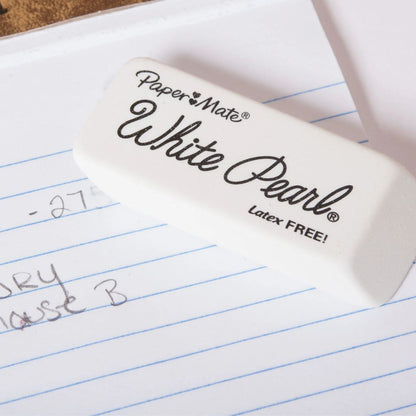 Paper Mate®
White Pearl®
Latex FREE!
- 27
B